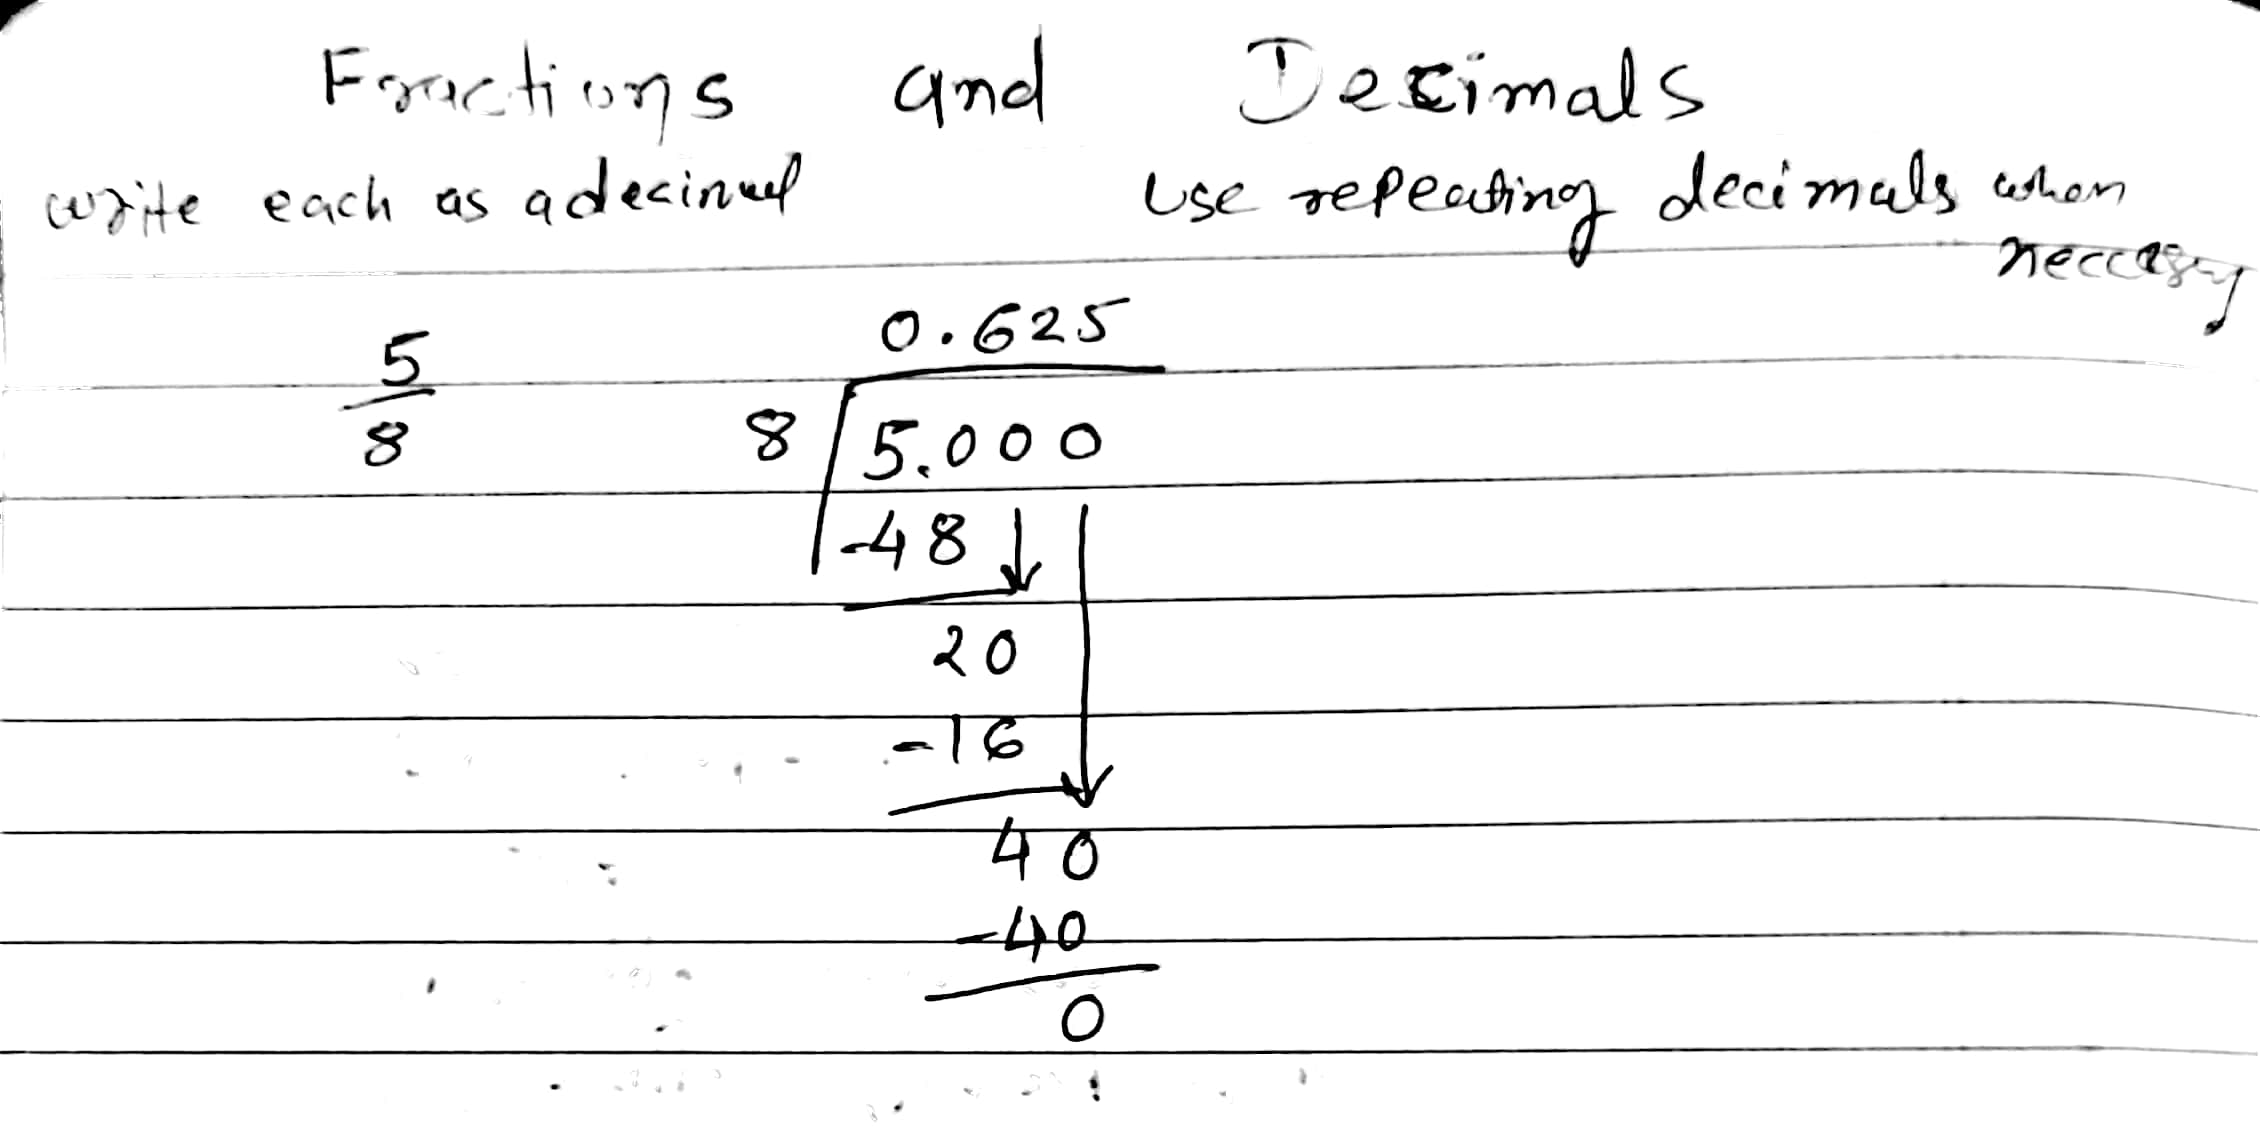 Fractions and Decimals
write each as a decimal use repeating decimals when
neccasry
0.625
5
8
8 5.000
-48
20
-16
40
-40
0